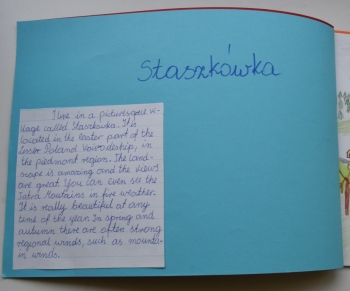 Staszkówka
I live in a picturesque vi-
llage called Staszkówka. It is
located in the easter part of the
Lesser Poland Voivodeship, in
the piedmont region. The land-
scape is amazing and the views
are great. You can even see the
Tatra Mountains in fine weather.
It is really beautiful at any
time of the year. In spring and
autumn there are often strong
regional winds, such as mounta-
in winds.